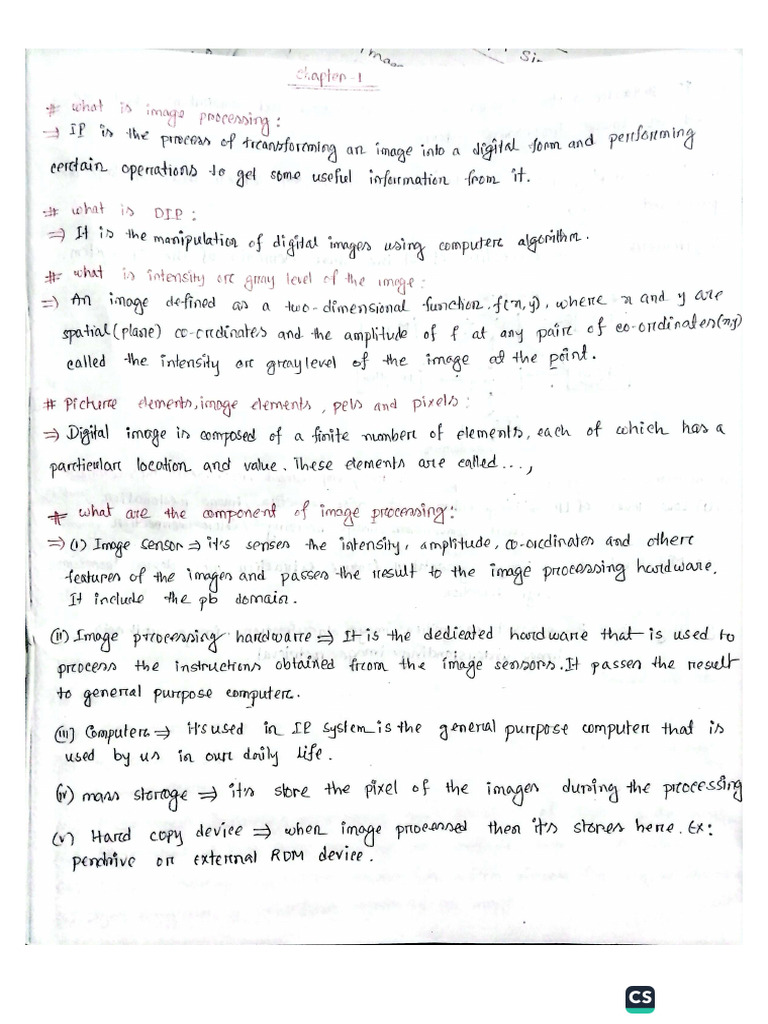 Chapter-1
# what is image processing:
⇒ IP is the process of transforming an image into a digital form and performing
certain operations to get some useful information from it.
# what is DIP:
⇒ It is the manipulation of digital images using computer algorithm.
# what is intensity or gray level of the image:
⇒ An image defined as a two-dimensional function, f(x,y), where x and y are
spatial(plane) co-ordinates and the amplitude of f at any pair of co-ordinates(x,y)
called the intensity or gray level of the image at the point.
# Picture elements, image elements, pels and pixels:
⇒ Digital image is composed of a finite number of elements, each of which has a
particular location and value. These elements are called...,
# what are the component of image processing:
⇒ (i) Image sensor ⇒ it's senses the intensity, amplitude, co-ordinates and other
features of the images and passes the result to the image processing hardware.
It include the pb domain.
(ii) Image processing hardware ⇒ It is the dedicated hardware that is used to
process the instructions obtained from the image sensors. It passes the result
to general purpose computer.
(iii) Computer ⇒ it's used in IP system is the general purpose computer that is
used by us in our daily life.
(iv) mass storage ⇒ it's store the pixel of the images during the processing
(v) Hard copy device ⇒ when image processed then it's stores here. Ex:
pendrive or external ROM device.
CS